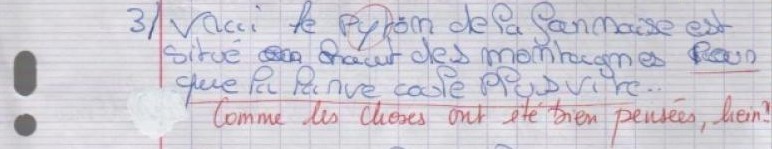 3/ Vacci le pyton de la fournaise est
situé en haut des montagnes pour
que la lanve coule plus vite..
Comme les choses ont été bien pensées, hein?